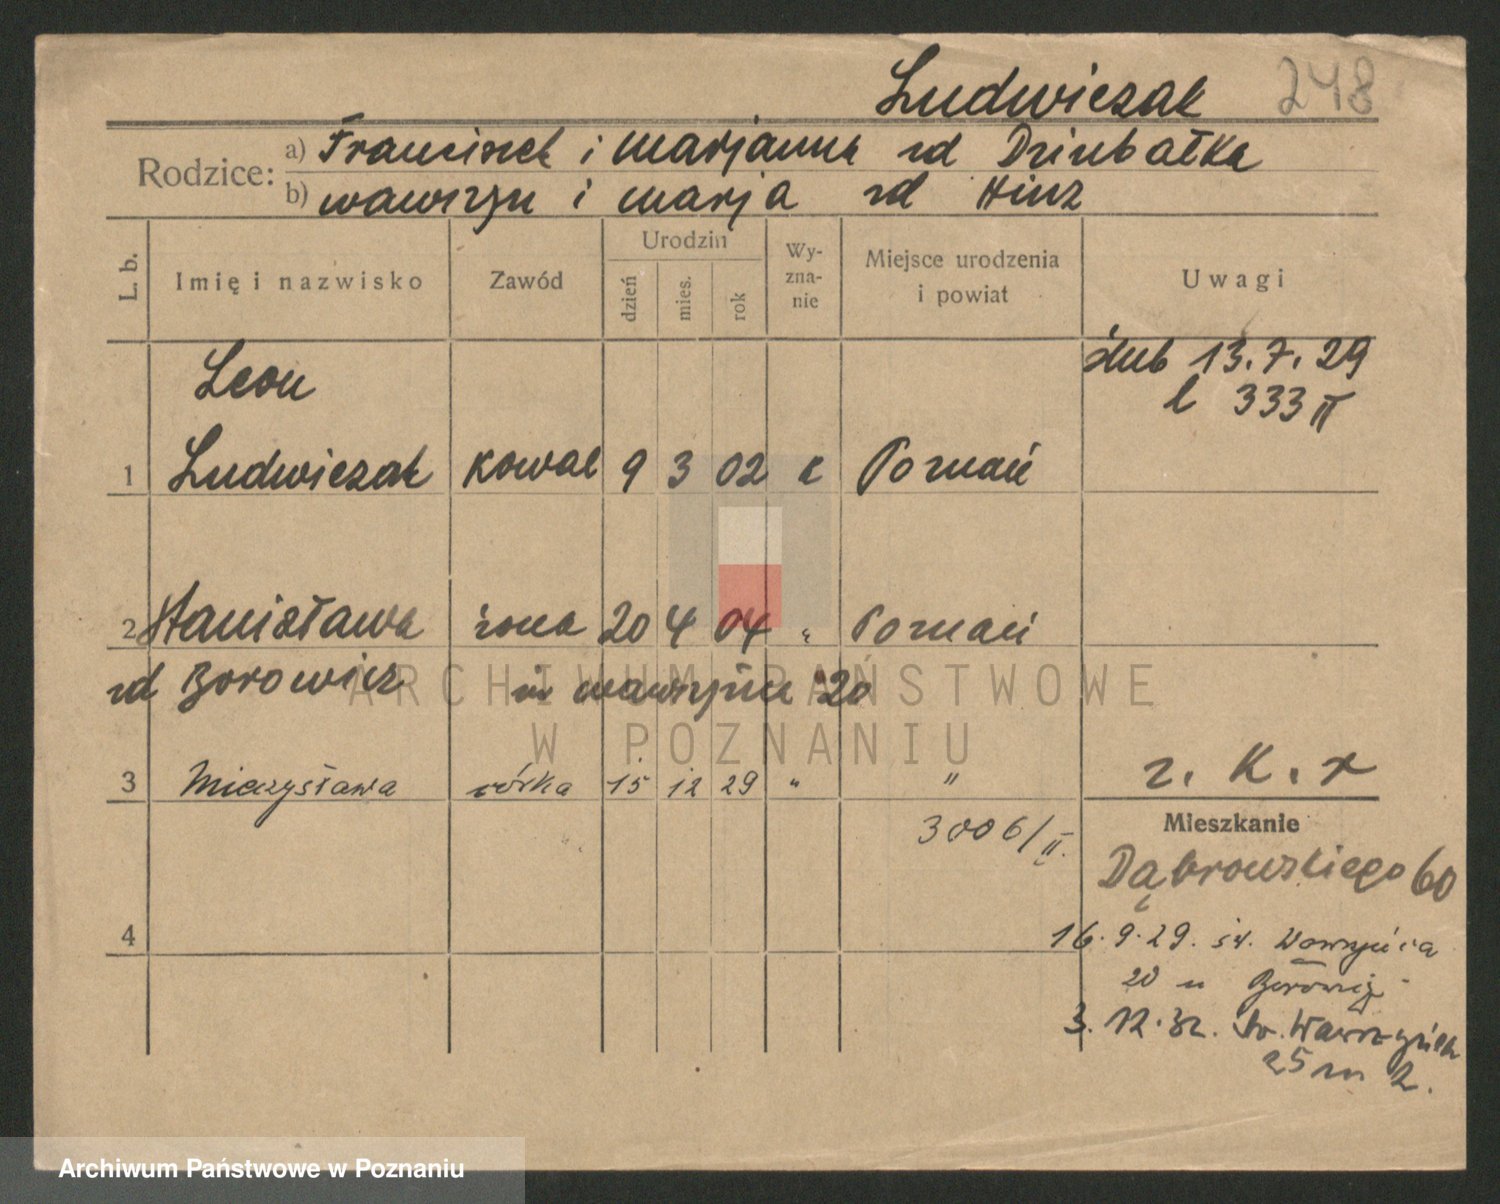 Ludwiczak 248
Rodzice: a) Franciszek i Marjanna rd Dziubałka
b) Wawrzyn i Marja rd Hinz
L. b. Imię i nazwisko Zawód Urodzin dzień mies. rok Wyznanie Miejsce urodzenia i powiat Uwagi
ślub 13.7.29
l 333 II
Leon
1 Ludwiczak kowal 9 3 02 k Poznań
2 Stanisława żona 20 4 04 " Poznań
rd Borowicz św Wawrzyńca 20
3 Mieczysława córka 15 12 29 " "
r. K. r
3006/II.
Mieszkanie
Dąbrowskiego 60
4
16.9.29. św. Wawrzyńca
20 u Borowicz
3.12.32. Św. Wawrzyńca
25 m 2.
ARCHIWUM PAŃSTWOWE
W POZNANIU
Archiwum Państwowe w Poznaniu